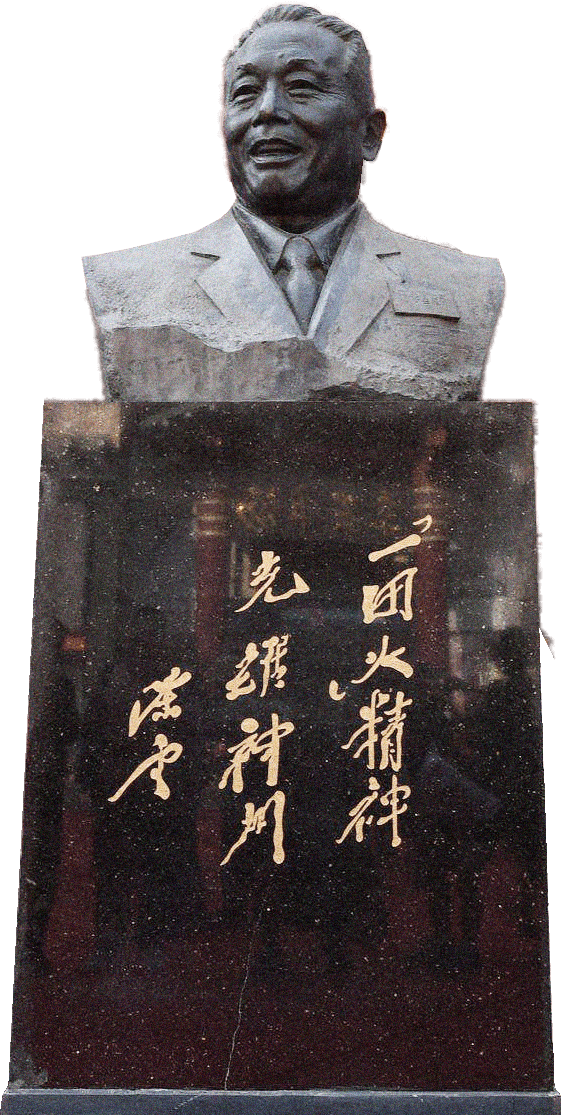 “一团火”精神
光耀神州
陈云